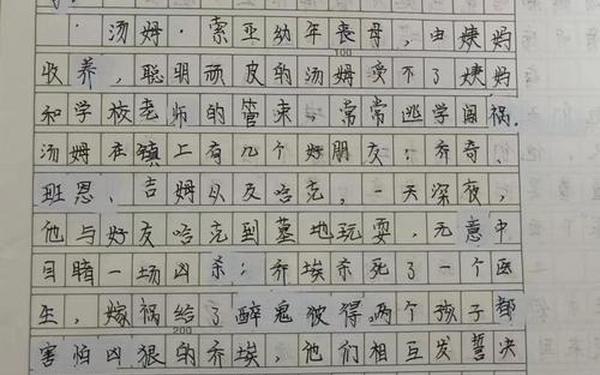 汤姆·索亚幼年丧母,由姨妈
100
收养,聪明顽皮的汤姆受不了姨妈
和学校老师的管束,常常逃学闯祸.
汤姆在镇上有几个好朋友:乔奇、
班恩、吉姆以及哈克,一天深夜,
他与好友哈克到墓地玩耍,无意中
目睹一场凶杀:乔埃杀死了一个医
生,嫁祸给了醉鬼彼得,两个孩子都
200
害怕凶狠的乔埃,他们相互发誓决